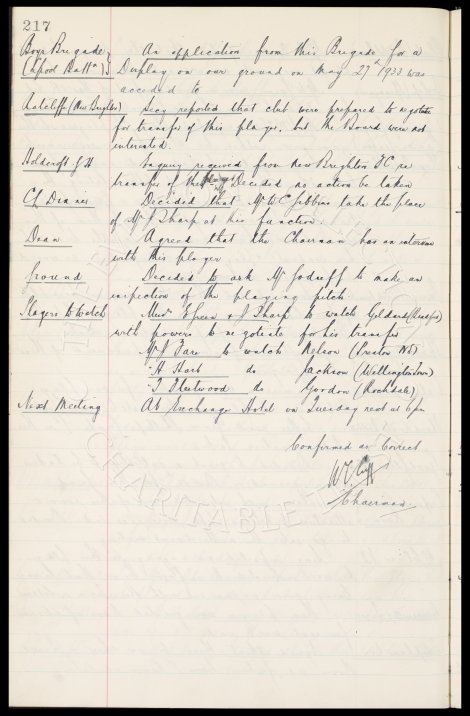 217
Boys Brigade An application from this Brigade for a
(L'pool Battn) Display on our ground on May 27th 1933 was
acceded to
Ratcliff (New Brighton) Secy reported that club were prepared to negotiate
for transfer of this player, but the Board were not
interested.
Holdcroft G H Inquiry received from New Brighton FC re
transfer of this player Decided no action be taken
CL Dinner Decided that Mr W C Gibbins take the place
of Mr J Sharp at this function.
Dean Agreed that the Chairman has an interview
with this player
Ground Decided to ask Mr to make an
inspection of the playing pitch.
Players to Watch Messrs Green & J Sharp to watch Geldard
with powers to negotiate for his transfer
Mr J Fare to watch Nelson (Preston NE)
" H Hart do Jackson (Wellington Town)
" T Fleetwood do Gordon (Rochdale)
Next Meeting At Exchange Hotel on Tuesday next at 6 pm
Confirmed as Correct
W C Cuff
Chairman.
CHARITABLE